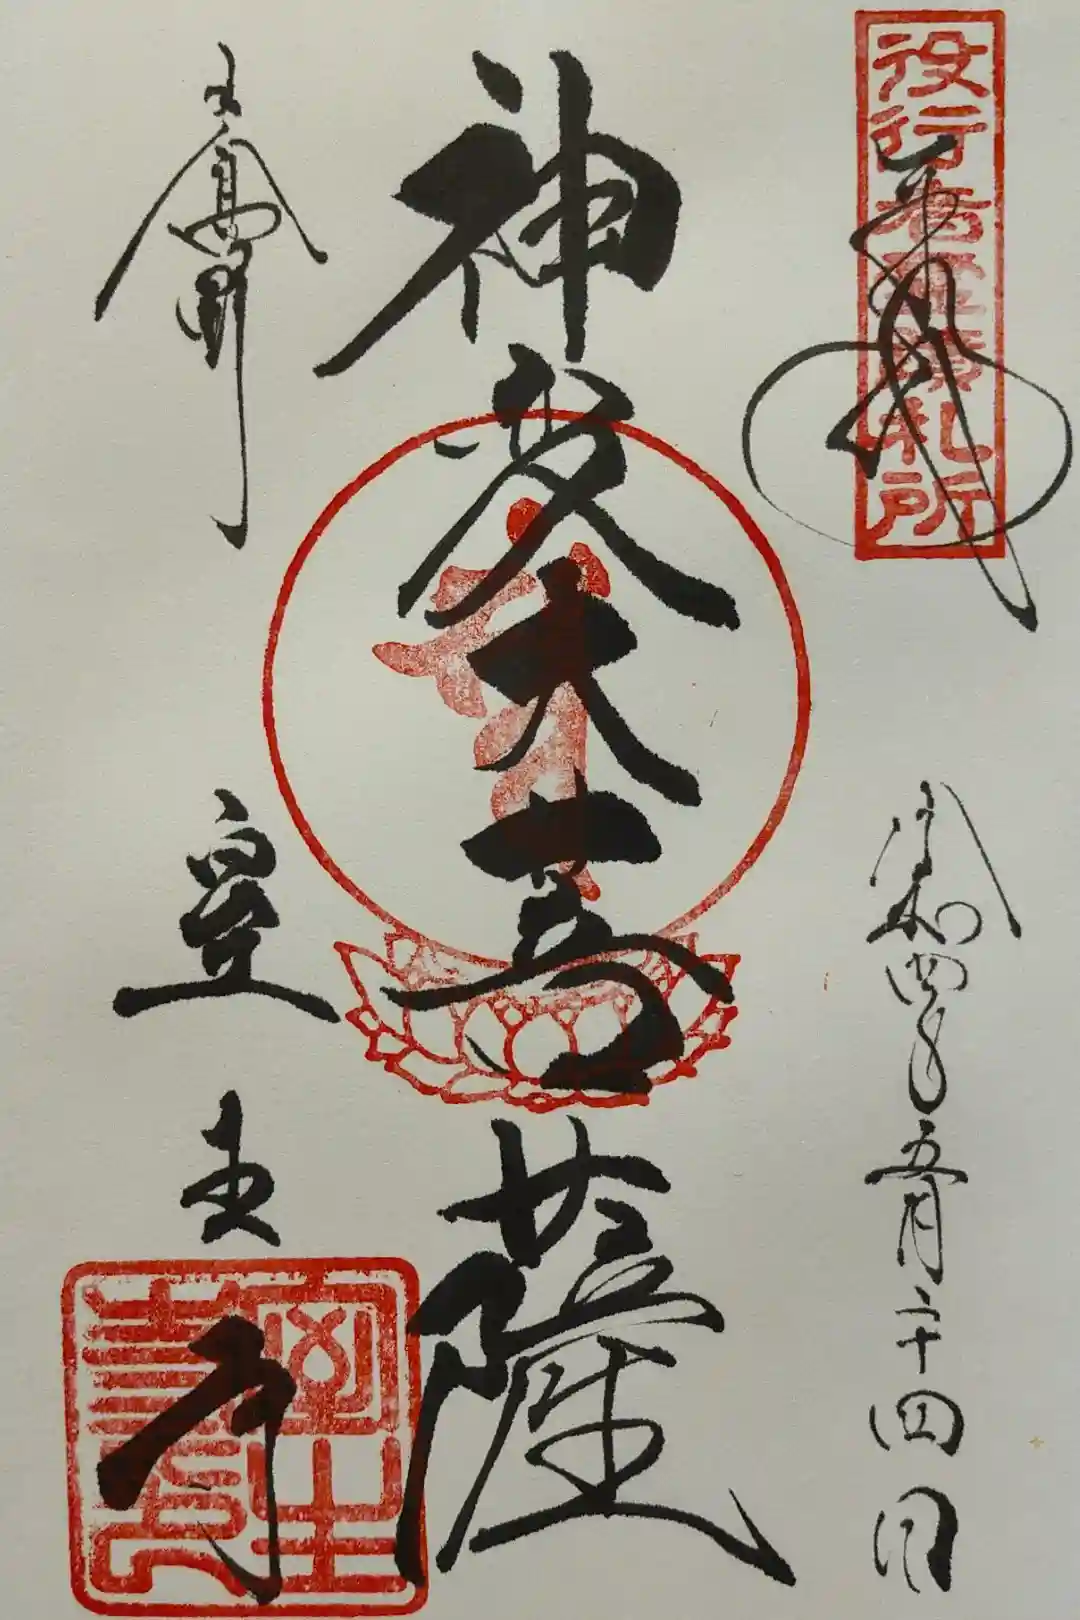 役行者霊蹟札所
奉拝
令和四年五月二十四日
神変大菩薩
女人高野
室生寺